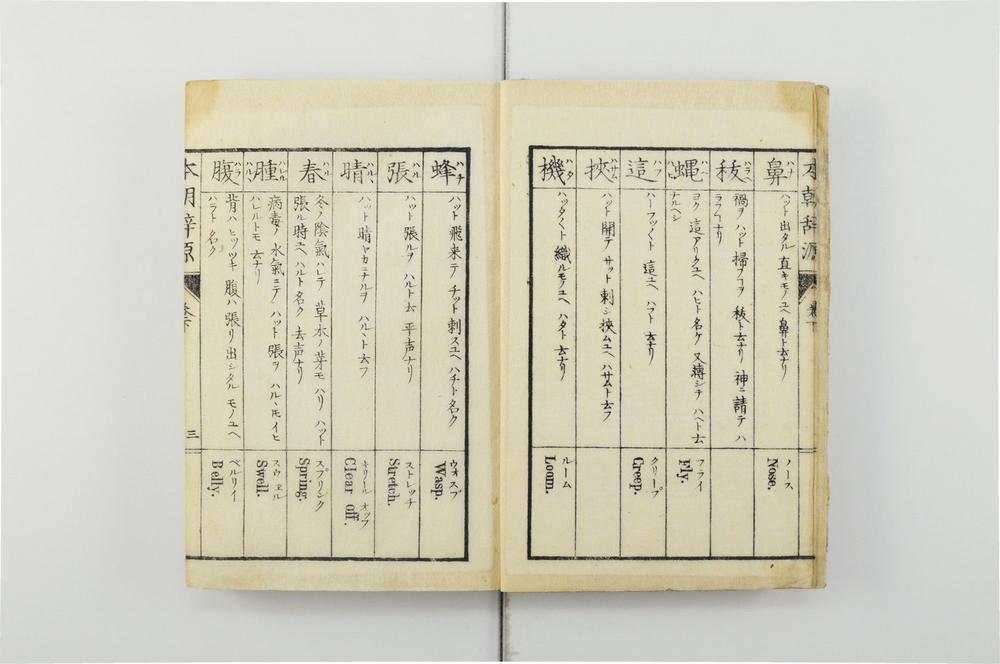 本朝辞源 巻下
鼻 ハナ
ハット出タル直キモノユヘ鼻ト云ナリ
ノース
Nose.
秡 ハラヘ
禍ヲハット掃フヿヲ秡ト云ナリ 神ニ請テハ
ラフヿナリ
蝿 ハヘ
ヨク這アリクユヘハヒト名ケ又縛シテハヘト云
ナルヘシ
フライ
Fly.
這 ハフ
ハーフットト這ユヘハフト云ナリ
クリープ
Creep.
挾 ハサム
ハット開テサット刺シ挾ムユヘハサムト云フ
機 ハタ
ハッタ〱ト織ルモノユヘハタト云ナリ
ルーム
Loom.
蜂 ハチ
ハット飛来テチット刺スユヘハチト名ク
ウォスプ
Wasp.
張 ハル
ハット張ルヲハルト云 平声ナリ
ストレッチ
Stretch.
晴 ハル、
ハット晴ヤカニナルヲハルト云フ
キリール オッフ
Clear off.
春 ハル
冬ノ陰氣ハレテ草木ノ芽モハリハット
張ル時ユヘハルト名ク 去声ナリ
スプリンク
Spring.
腫 ハレル ハル、
病毒ノ水氣ニテハット張ヲハル、トモイヒ
ハレルトモ云ナリ
スウェル
Swell.
腹 ハラ
背ハヒッツキ腹ハ張リ出シタルモノユヘ
ハラト名ク
ベルリイ
Belly.
三